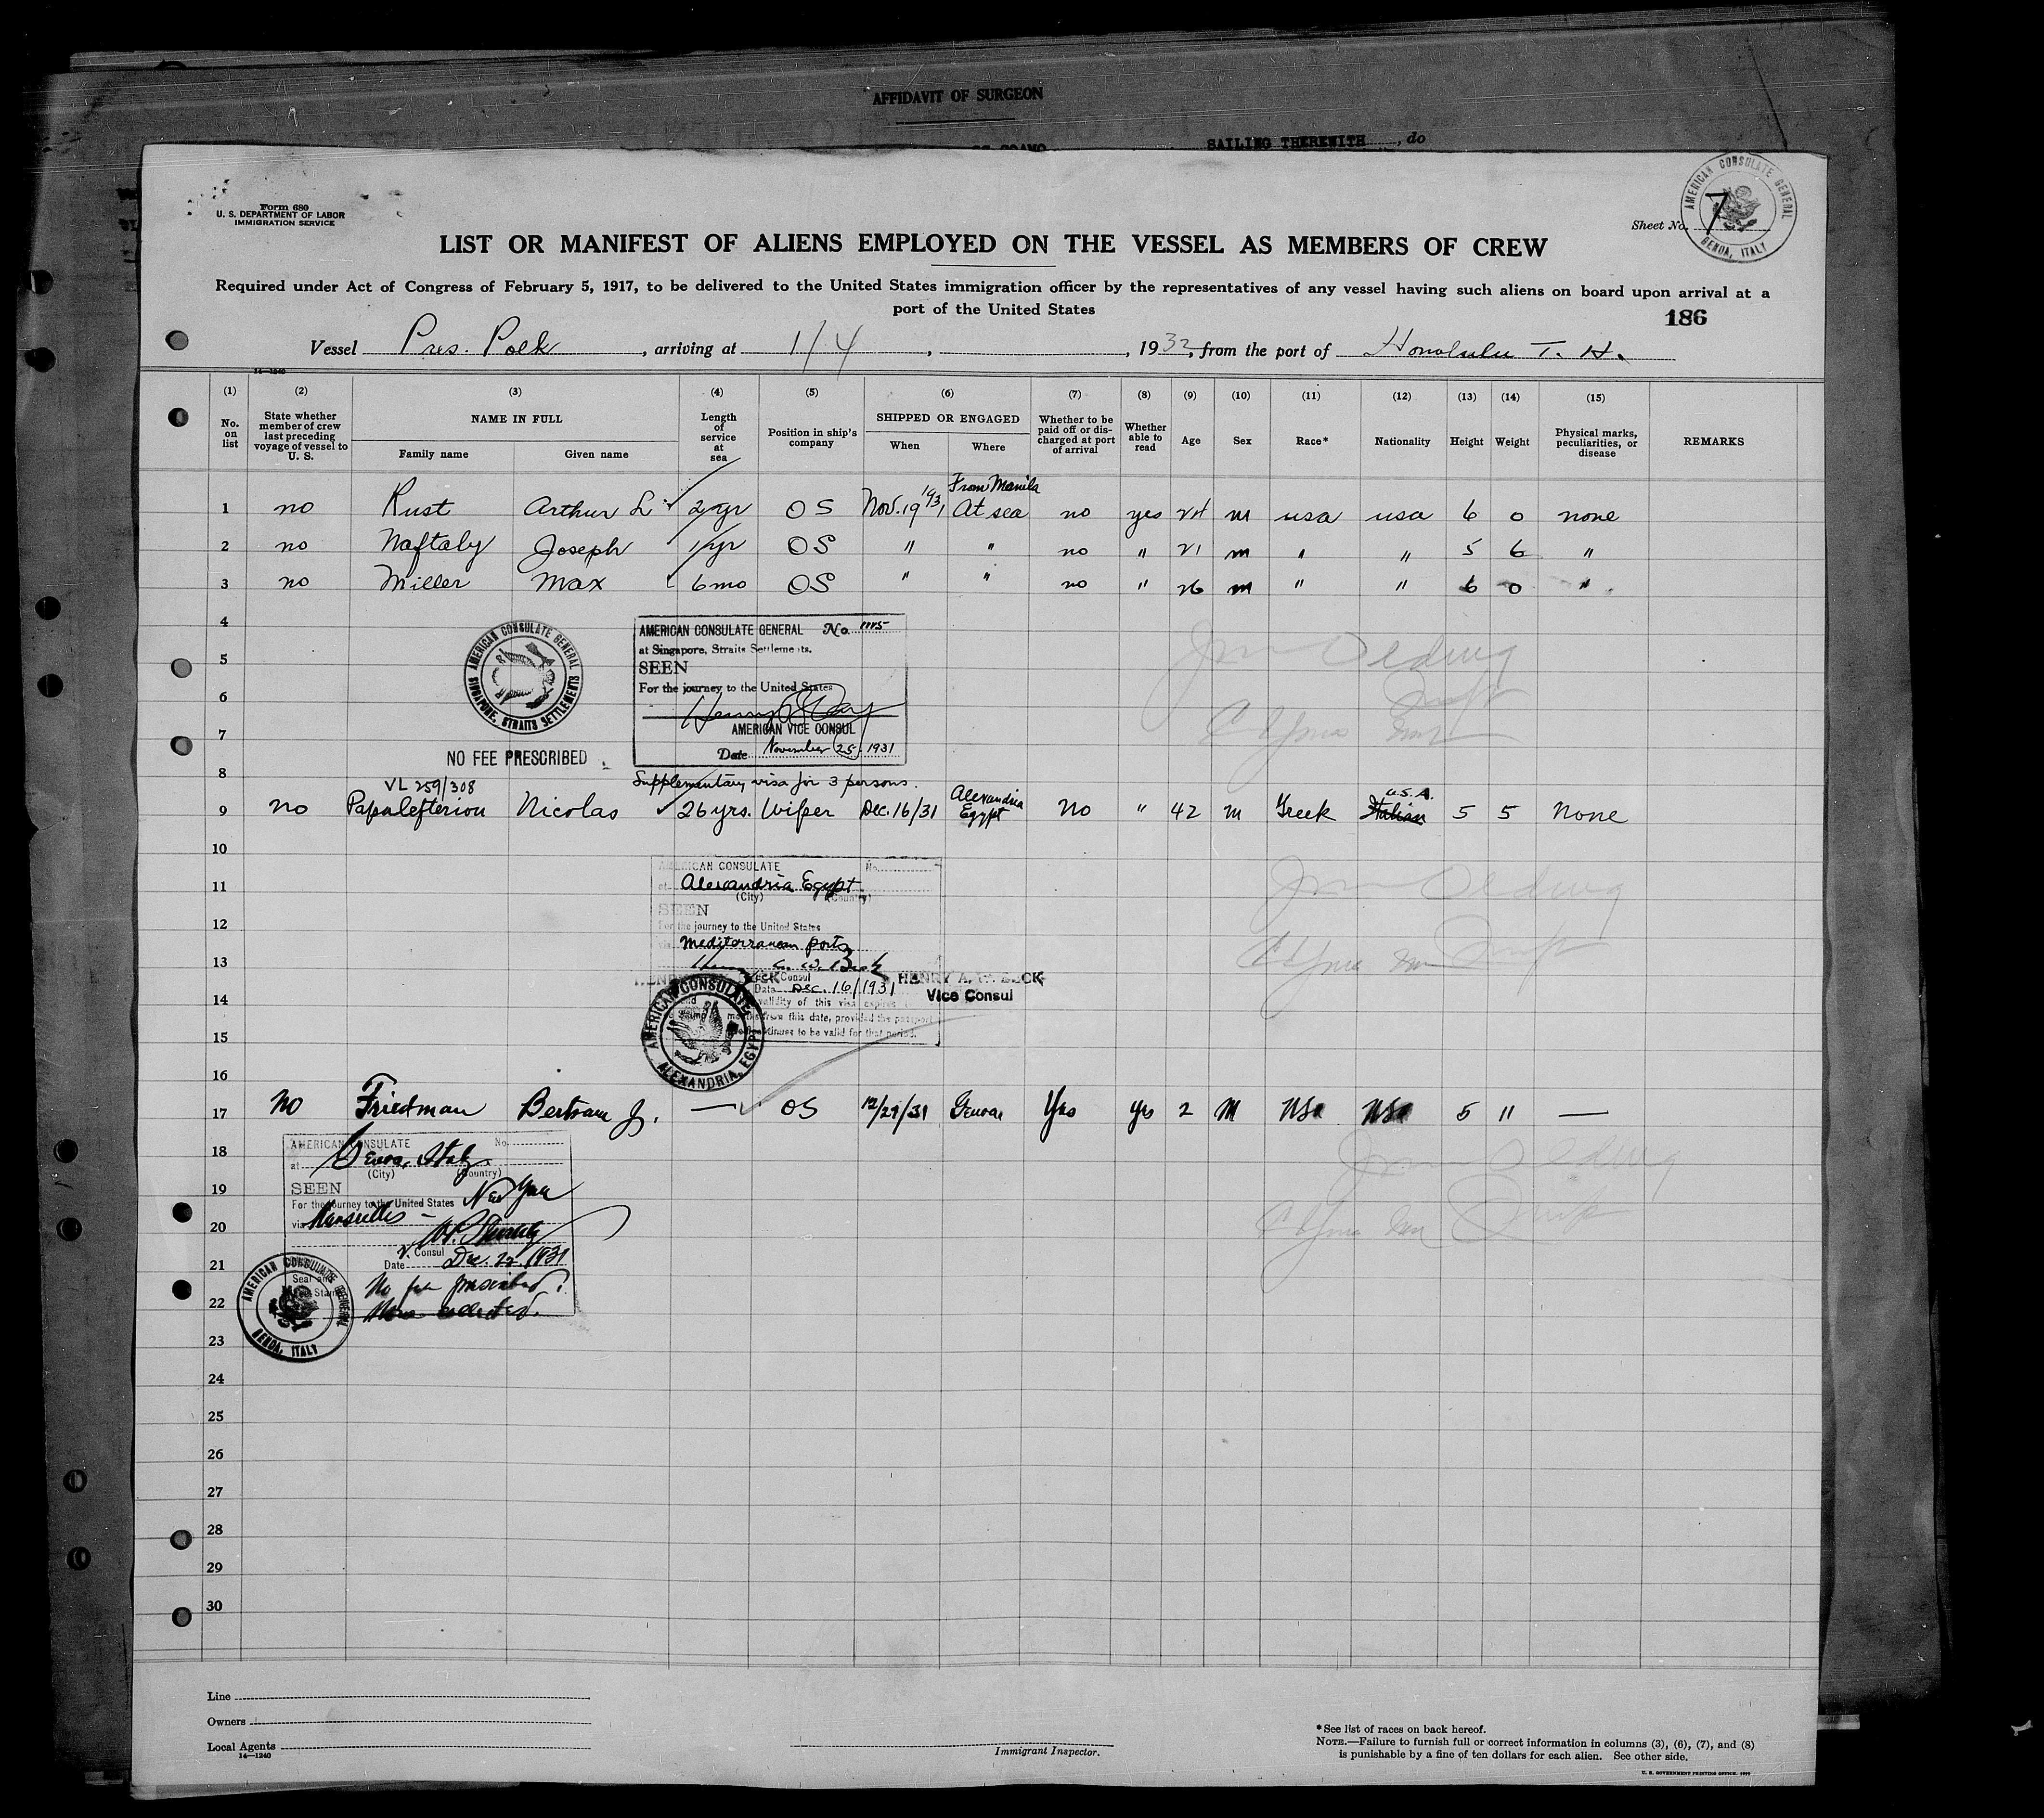 AFFIDAVIT OF SURGEON
SAILING THEREWITH, do
Form 680
U. S. DEPARTMENT OF LABOR
IMMIGRATION SERVICE
Sheet No. 7
AMERICAN CONSULATE GENERAL
GENOA, ITALY
LIST OR MANIFEST OF ALIENS EMPLOYED ON THE VESSEL AS MEMBERS OF CREW
Required under Act of Congress of February 5, 1917, to be delivered to the United States immigration officer by the representatives of any vessel having such aliens on board upon arrival at a
port of the United States
186
Vessel Pres. Polk, arriving at 1/4, 1932, from the port of Honolulu T. H.
14—1240
(1) (2) (3) (4) (5) (6) (7) (8) (9) (10) (11) (12) (13) (14) (15)
No. on list
State whether member of crew last preceding voyage of vessel to U. S.
NAME IN FULL
Family name Given name
Length of service at sea
Position in ship's company
SHIPPED OR ENGAGED
When Where
Whether to be paid off or discharged at port of arrival
Whether able to read
Age
Sex
Race*
Nationality
Height
Weight
Physical marks, peculiarities, or disease
REMARKS
From Manila
1 no Rust Arthur L 2 yr OS Nov. 19 1931 At sea no yes 24 m usa usa 6 0 none
2 no Naftaly Joseph 1 yr OS " " no " 21 m " " 5 6 "
3 no Miller Max 6 mo OS " " no " 26 m " " 6 0 "
4
5
6
7
8
AMERICAN CONSULATE GENERAL
SINGAPORE, STRAITS SETTLEMENTS
NO FEE PRESCRIBED
AMERICAN CONSULATE GENERAL No. 1115
at Singapore, Straits Settlements.
SEEN
For the journey to the United States
AMERICAN VICE CONSUL
Date November 25, 1931
Supplementary visa for 3 persons.
VL 259/308
9 no Papalefteriou Nicolas 26 yrs. Wiper Dec. 16/31 Alexandria Egypt No " 42 m Greek Italian U.S.A. 5 5 None
10
11
12
13
14
15
16
AMERICAN CONSULATE No.
at Alexandria Egypt
(City) (Country)
SEEN
For the journey to the United States
via Mediterranean ports
Henry A. W. Beck
HENRY A. W. BECK
Consul
Vice Consul
Date Dec. 16/1931
validity of this visa expires
months from this date, provided the passport
continues to be valid for that period.
AMERICAN CONSULATE
ALEXANDRIA, EGYPT
17 No Friedman Bertram J. — OS 12/29/31 Genoa Yes yes 2 M USA USA 5 11 —
AMERICAN CONSULATE No.
at Genoa, Italy
(City) (Country)
SEEN
For the journey to the United States New York
via Marseilles
V. Consul
Date Dec. 1931
No fee prescribed
None collected.
AMERICAN CONSULATE GENERAL
GENOA, ITALY
18
19
20
21
22
23
24
25
26
27
28
29
30
Line
Owners
Local Agents
14—1240
Immigrant Inspector.
*See list of races on back hereof.
NOTE.—Failure to furnish full or correct information in columns (3), (6), (7), and (8)
is punishable by a fine of ten dollars for each alien. See other side.
U. S. GOVERNMENT PRINTING OFFICE